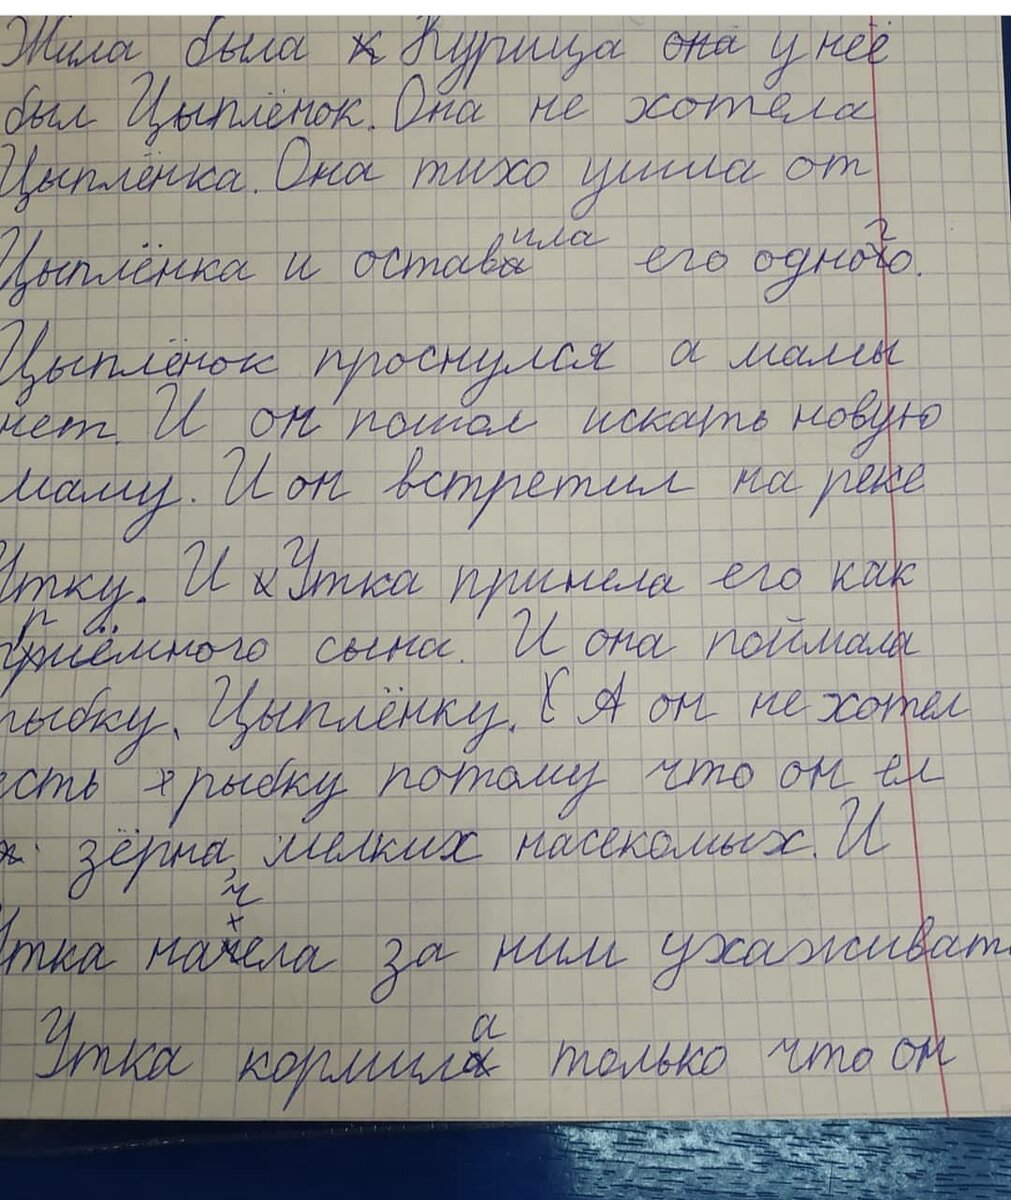 Жила была Курица она у неё
был Цыплёнок. Она не хотела
Цыплёнка. Она тихо ушла от
Цыплёнка и оставила его одного.
Цыплёнок проснулся а мамы
нет. И он пошол искать новую
маму. И он встретил на реке
Утку. И Утка принела его как
приёмного сына. И она поймала
рыбку, Цыплёнку. А он не хотел
есть рыбку потому что он ел
зёрна, мелких насекомых. И
Утка начела за ним ухаживать
Утка кормила только что он